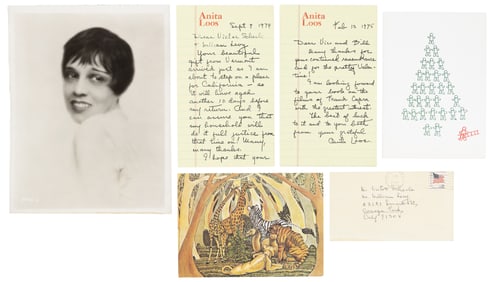 Anita
Loos
Sept 9, 1974
Dear Victor
& William Levy
Your beautiful
gift from Vermont
arrived just as I am
about to step on a plane
for California - so
it will have again
another 10 days before
my return. And I
can assure you that
my household will
do it full justice from
that time on! Many,
many thanks.
I hope that your
Anita
Loos
Feb 13 1975
Dear Vic and Bill
Many thanks for
your continued remembrance
and for the pretty Valen-
tine!
I am looking forward
to your book on the
films of Frank Capra
with the greatest interest.
The best of luck
to it and to you both
from your grateful
Anita Loos
William Levy